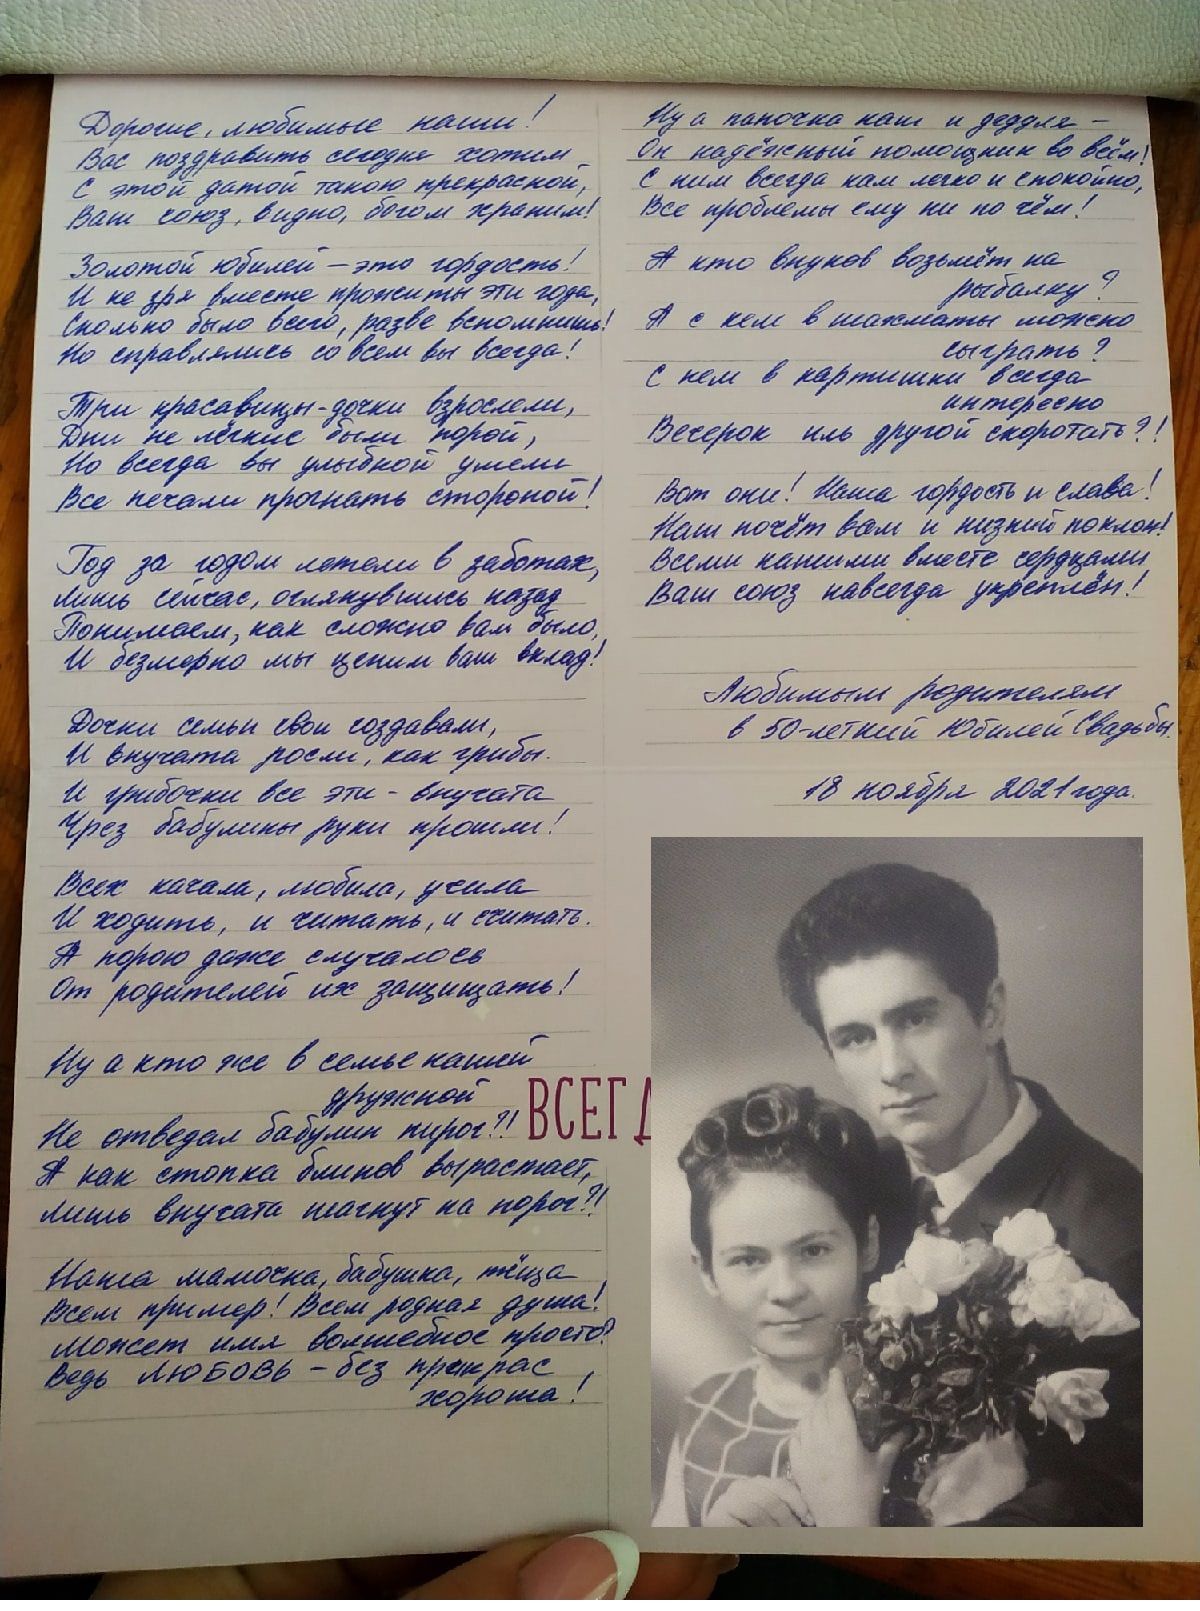 Дорогие, любимые наши!
Вас поздравить сегодня хотим
С этой датой такою прекрасной,
Ваш союз, видно, богом храним!
Золотой юбилей — это гордость!
И не зря вместе прожиты эти года,
Сколько было всего, разве вспомнишь!
Но справлялись со всем вы всегда!
Три красавицы-дочки взрослели,
Дни не лёгкие были порой,
Но всегда вы улыбкой умели
Все печали прогнать стороной!
Год за годом летели в заботах,
Лишь сейчас, оглянувшись назад
Понимаем, как сложно вам было,
И безмерно мы ценим ваш вклад!
Дочки семьи свои создавали,
И внучата росли, как грибы.
И грибочки все эти - внучата
Чрез бабулины руки прошли!
Всех качала, любила, учила
И ходить, и читать, и считать.
А порою даже случалось
От родителей их защищать!
Ну а кто же в семье нашей
дружной
Не отведал бабулин пирог?!
А как стопка блинов вырастает,
Лишь внучата шагнут на порог?!
Наша мамочка, бабушка, тёща
Всем пример! Всем родная душа!
Может имя волшебное просто?
Ведь ЛЮБОВЬ - без прикрас
хороша!
Ну а папочка наш и деддля —
Он надёжный помощник во всём!
С ним всегда нам легко и спокойно,
Все проблемы ему ни по чём!
А кто внуков возьмёт на
рыбалку?
А с кем в шахматы можно
сыграть?
С кем в картишки всегда
интересно
Вечерок иль другой скоротать?!
Вот они! Наша гордость и слава!
Наш почёт вам и низкий поклон!
Всеми нашими вместе сердцами
Ваш союз навсегда укреплён!
Любимым родителям
в 50-летний Юбилей Свадьбы.
18 ноября 2021 года.
ВСЕГД